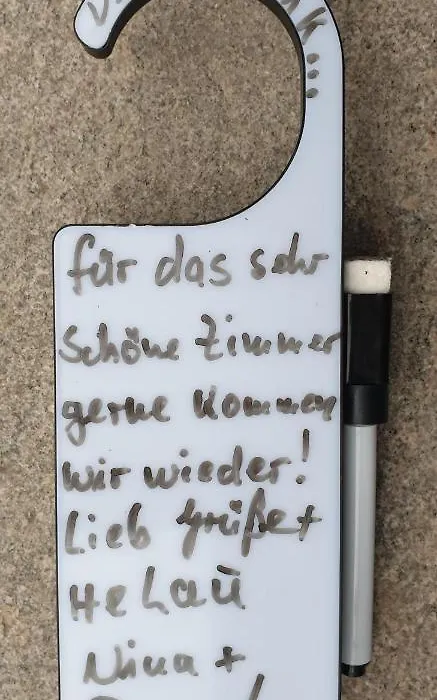 für das sehr
schöne Zimmer
gerne kommen
wir wieder!
Lieb Grüße +
Helau
Nina +